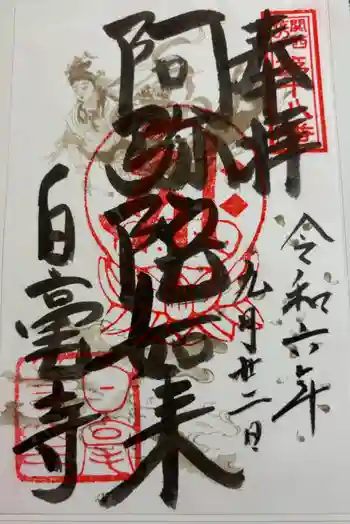 奉拝
令和六年
九月廿二日
阿弥陀如来
白毫寺
関西